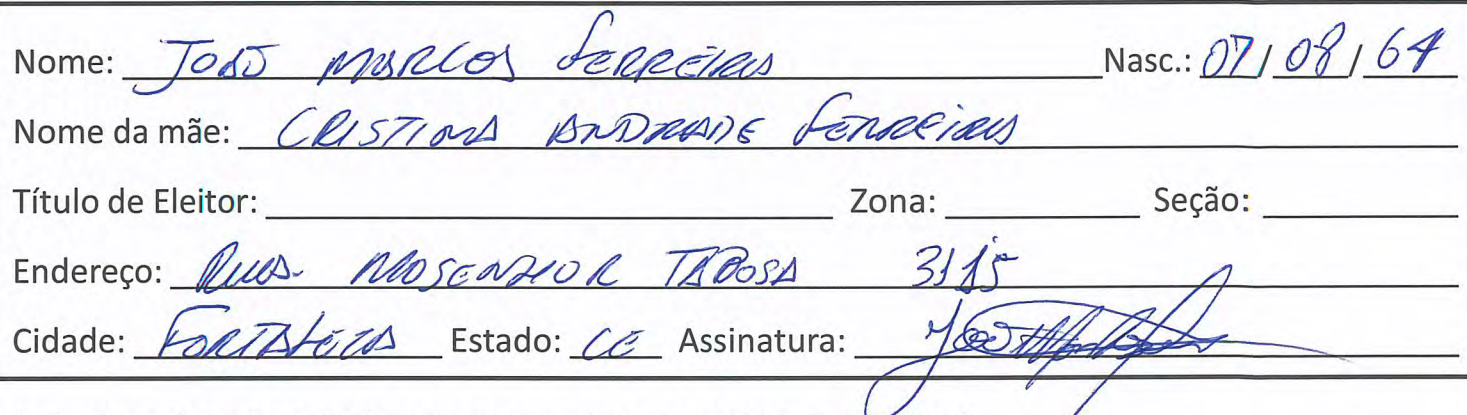 Nome: JOÃO MARCOS FERREIRA Nasc.: 07/08/64
Nome da mãe: CRISTINA ANDRADE FERREIRA
Título de Eleitor: Zona: Seção:
Endereço: RUA MOSENHOR TABOSA 3115
Cidade: FORTALEZA Estado: CE Assinatura: